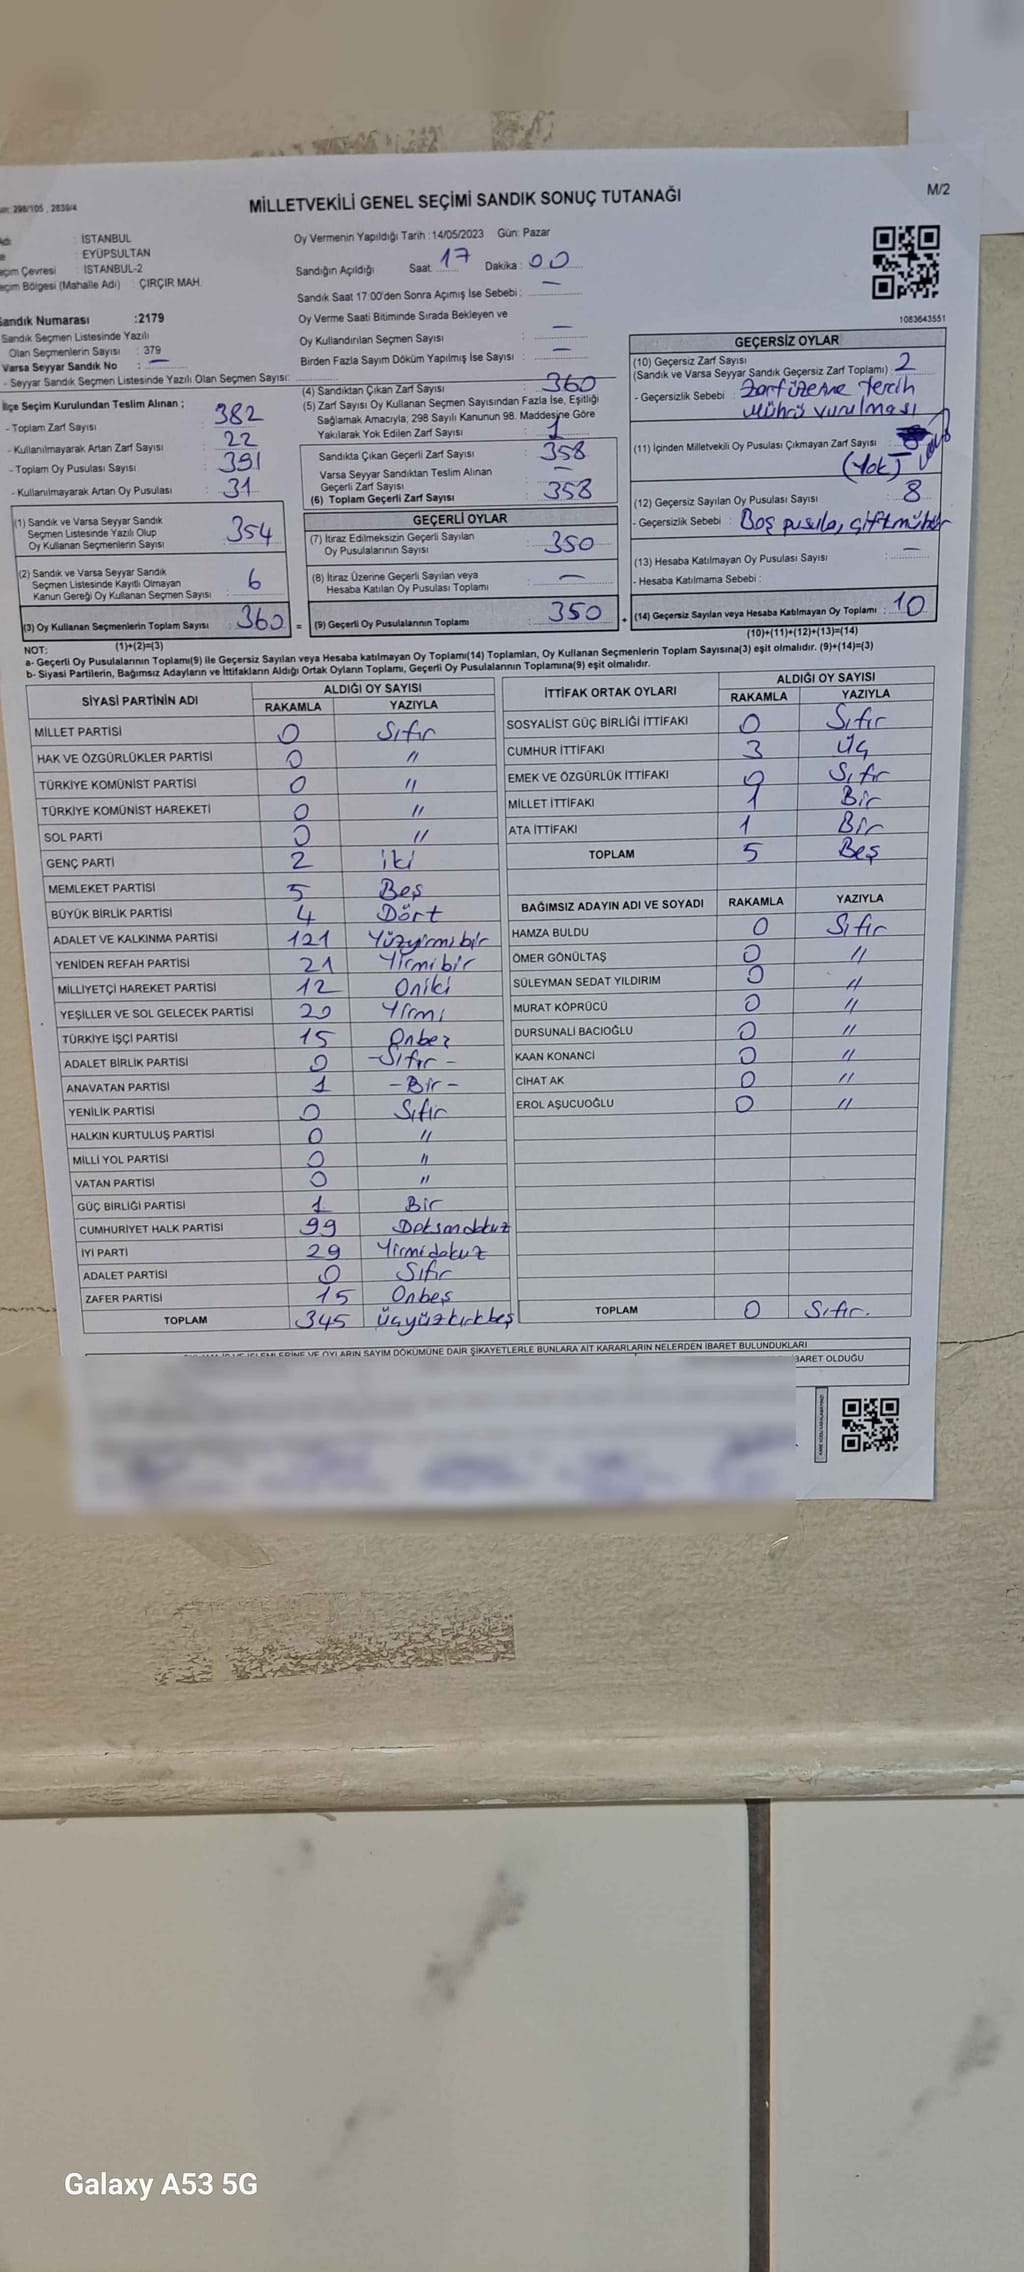 298/105 , 2839/4
MİLLETVEKİLİ GENEL SEÇİMİ SANDIK SONUÇ TUTANAĞI
M/2
: İSTANBUL
: EYÜPSULTAN
Seçim Çevresi : İSTANBUL-2
Seçim Bölgesi (Mahalle Adı) : ÇIRÇIR MAH.
Sandık Numarası :2179
Sandık Seçmen Listesinde Yazılı
Olan Seçmenlerin Sayısı : 379
Varsa Seyyar Sandık No : —
- Seyyar Sandık Seçmen Listesinde Yazılı Olan Seçmen Sayısı:
Oy Vermenin Yapıldığı Tarih :14/05/2023 Gün: Pazar
Sandığın Açıldığı Saat : 17 Dakika : 00
Sandık Saat 17:00'den Sonra Açımış İse Sebebi : —
Oy Verme Saati Bitiminde Sırada Bekleyen ve
Oy Kullandırılan Seçmen Sayısı : —
Birden Fazla Sayım Döküm Yapılmış İse Sayısı : —
1083643551
İlçe Seçim Kurulundan Teslim Alınan ;
- Toplam Zarf Sayısı : 382
- Kullanılmayarak Artan Zarf Sayısı : 22
- Toplam Oy Pusulası Sayısı : 391
- Kullanılmayarak Artan Oy Pusulası : 31
(1) Sandık ve Varsa Seyyar Sandık
Seçmen Listesinde Yazılı Olup
Oy Kullanan Seçmenlerin Sayısı : 354
(2) Sandık ve Varsa Seyyar Sandık
Seçmen Listesinde Kayıtlı Olmayan
Kanun Gereği Oy Kullanan Seçmen Sayısı : 6
(3) Oy Kullanan Seçmenlerin Toplam Sayısı : 360 =
(1)+(2)=(3)
(4) Sandıktan Çıkan Zarf Sayısı : 360
(5) Zarf Sayısı Oy Kullanan Seçmen Sayısından Fazla İse, Eşitliği
Sağlamak Amacıyla, 298 Sayılı Kanunun 98. Maddesine Göre
Yakılarak Yok Edilen Zarf Sayısı : 1
Sandıkta Çıkan Geçerli Zarf Sayısı : 358
Varsa Seyyar Sandıktan Teslim Alınan
Geçerli Zarf Sayısı : —
(6) Toplam Geçerli Zarf Sayısı : 358
GEÇERLİ OYLAR
(7) İtiraz Edilmeksizin Geçerli Sayılan
Oy Pusulalarının Sayısı : 350
(8) İtiraz Üzerine Geçerli Sayılan veya
Hesaba Katılan Oy Pusulası Toplamı : —
(9) Geçerli Oy Pusulalarının Toplamı : 350 +
GEÇERSİZ OYLAR
(10) Geçersiz Zarf Sayısı
(Sandık ve Varsa Seyyar Sandık Geçersiz Zarf Toplamı) : 2
- Geçersizlik Sebebi : Zarf üzerine tercih
mührü vurulması
(11) İçinden Milletvekili Oy Pusulası Çıkmayan Zarf Sayısı :
(Yok)
(12) Geçersiz Sayılan Oy Pusulası Sayısı : 8
- Geçersizlik Sebebi : Boş pusula, çift mühür
(13) Hesaba Katılmayan Oy Pusulası Sayısı : —
- Hesaba Katılmama Sebebi :
(14) Geçersiz Sayılan veya Hesaba Katılmayan Oy Toplamı : 10
(10)+(11)+(12)+(13)=(14)
NOT:
a- Geçerli Oy Pusulalarının Toplamı(9) ile Geçersiz Sayılan veya Hesaba katılmayan Oy Toplamı(14) Toplamları, Oy Kullanan Seçmenlerin Toplam Sayısına(3) eşit olmalıdır. (9)+(14)=(3)
b- Siyasi Partilerin, Bağımsız Adayların ve İttifakların Aldığı Ortak Oyların Toplamı, Geçerli Oy Pusulalarının Toplamına(9) eşit olmalıdır.
SİYASİ PARTİNİN ADI ALDIĞI OY SAYISI
RAKAMLA YAZIYLA
MİLLET PARTİSİ 0 Sıfır
HAK VE ÖZGÜRLÜKLER PARTİSİ 0 "
TÜRKİYE KOMÜNİST PARTİSİ 0 "
TÜRKİYE KOMÜNİST HAREKETİ 0 "
SOL PARTİ 0 "
GENÇ PARTİ 2 iki
MEMLEKET PARTİSİ 5 Beş
BÜYÜK BİRLİK PARTİSİ 4 Dört
ADALET VE KALKINMA PARTİSİ 121 Yüzyirmibir
YENİDEN REFAH PARTİSİ 21 Yirmibir
MİLLİYETÇİ HAREKET PARTİSİ 12 Oniki
YEŞİLLER VE SOL GELECEK PARTİSİ 20 Yirmi
TÜRKİYE İŞÇİ PARTİSİ 15 Onbeş
ADALET BİRLİK PARTİSİ 0 -Sıfır-
ANAVATAN PARTİSİ 1 -Bir-
YENİLİK PARTİSİ 0 Sıfır
HALKIN KURTULUŞ PARTİSİ 0 "
MİLLİ YOL PARTİSİ 0 "
VATAN PARTİSİ 0 "
GÜÇ BİRLİĞİ PARTİSİ 1 Bir
CUMHURİYET HALK PARTİSİ 99 Doksandokuz
İYİ PARTİ 29 Yirmidokuz
ADALET PARTİSİ 0 Sıfır
ZAFER PARTİSİ 15 Onbeş
TOPLAM 345 Üçyüzkırkbeş
İTTİFAK ORTAK OYLARI ALDIĞI OY SAYISI
RAKAMLA YAZIYLA
SOSYALİST GÜÇ BİRLİĞİ İTTİFAKI 0 Sıfır
CUMHUR İTTİFAKI 3 Üç
EMEK VE ÖZGÜRLÜK İTTİFAKI 0 Sıfır
MİLLET İTTİFAKI 1 Bir
ATA İTTİFAKI 1 Bir
TOPLAM 5 Beş
BAĞIMSIZ ADAYIN ADI VE SOYADI RAKAMLA YAZIYLA
HAMZA BULDU 0 Sıfır
ÖMER GÖNÜLTAŞ 0 "
SÜLEYMAN SEDAT YILDIRIM 0 "
MURAT KÖPRÜCÜ 0 "
DURSUNALİ BACIOĞLU 0 "
KAAN KONANCİ 0 "
CİHAT AK 0 "
EROL AŞUCUOĞLU 0 "
TOPLAM 0 Sıfır.
OYLARIN SAYIM DÖKÜMÜNE DAİR ŞİKAYETLERLE BUNLARA AİT KARARLARIN NELERDEN İBARET BULUNDUKLARI
İBARET OLDUĞU
Galaxy A53 5G